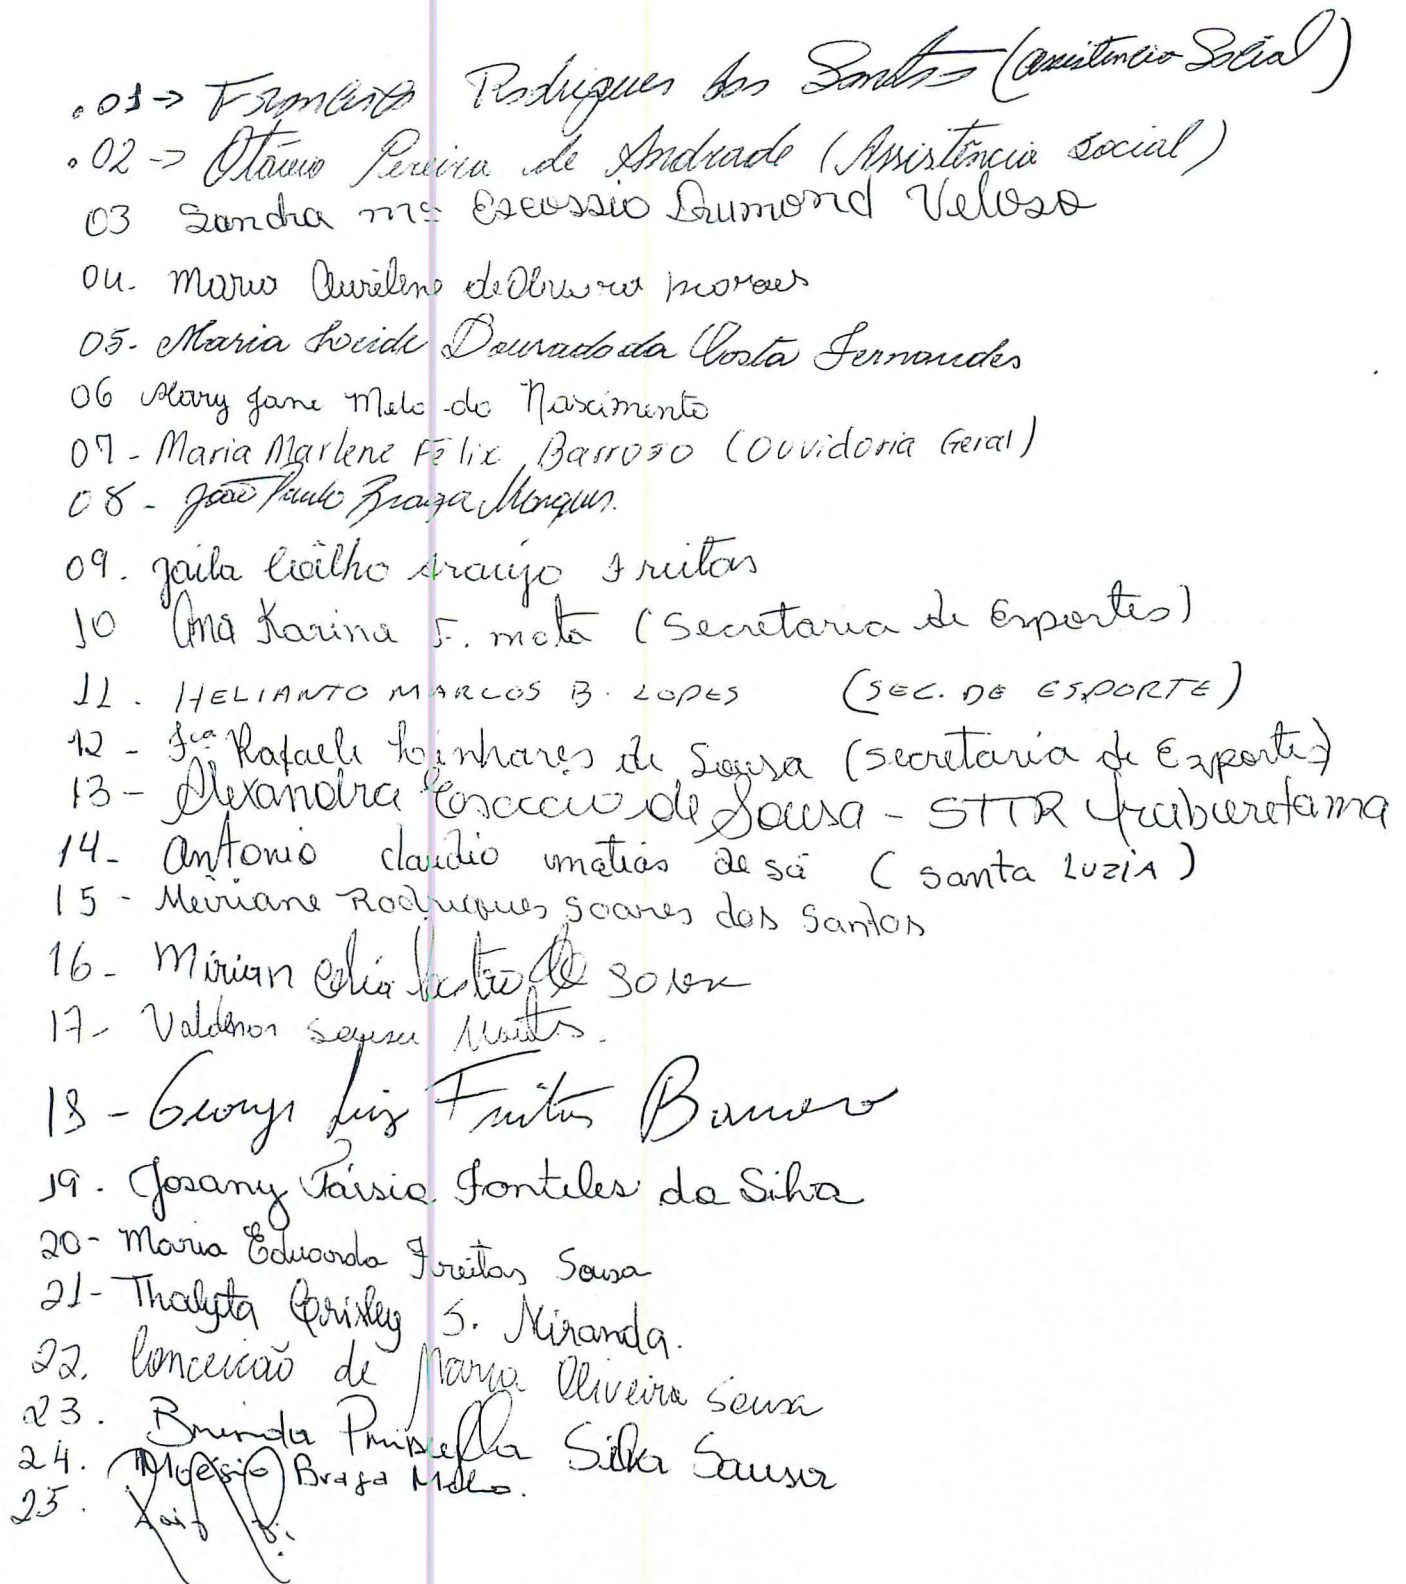 .01-> Francisco Rodrigues dos Santos (assistencia Social)
.02-> Otávio Pereira de Andrade (Assistência social)
03 Sandra Mª Escossio Drumond Veloso
04. Maria Aurilene de Oliveira Moraes
05- Maria Leide Dourado da Costa Fernandes
06 Mary Jane Melo do Nascimento
07- Maria Marlene Félix Barroso (Ouvidoria Geral)
08- João Paulo Braga Marques.
09. Jaila Coêlho Araujo Freitas
10 Ana Karina F. Mota (Secretaria de Esportes)
11. HELIANTO MARCOS B. LOPES (SEC. DE ESPORTE)
12- Fca Rafaele Linhares de Sousa (Secretaria de Esportes)
13- Alexandra de Sousa - STTR Irauburetama
14- Antonio claudio matias de sá (Santa LUZIA)
15- Meiriane Rodrigues Soares dos Santos
16- Mirian Célia Castro de Sousa
17- Valdenor Sousa
18- George Luiz Freitas Barroso
19. Josany Társia Fonteles da Silva
20- Maria Eduarda Freitas Sousa
21- Thalyta Crisley S. Miranda.
22. Conceicão de Maria Oliveira Sousa
23. Brenda Priscella Silva Sousa
24. Braga Melo.
25.